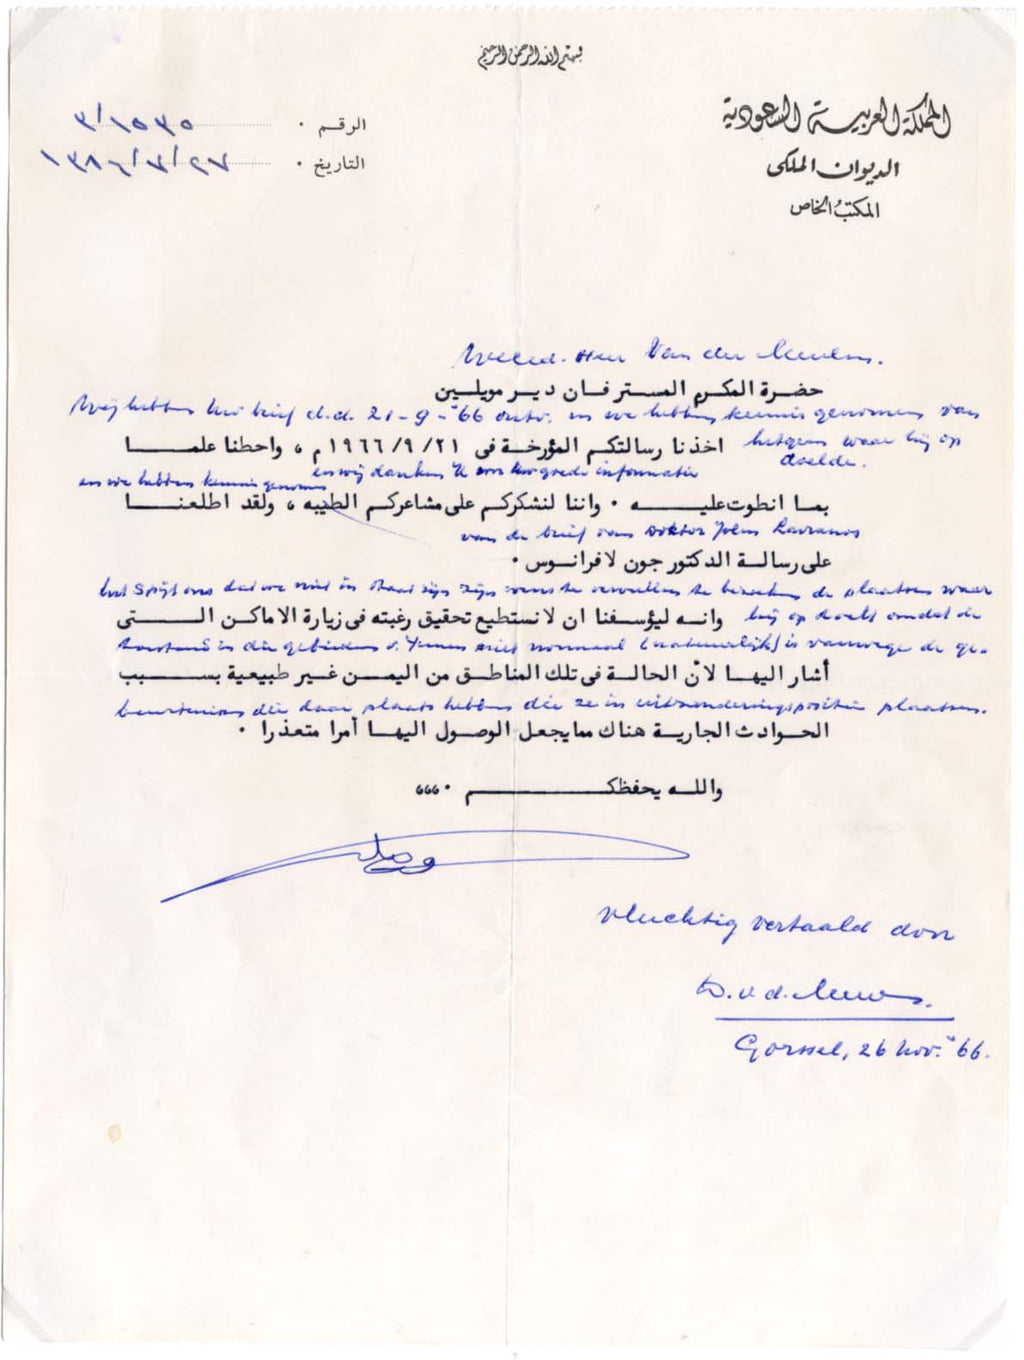 بسم الله الرحمن الرحيم
المملكة العربية السعودية
الديوان الملكي
المكتب الخاص
الرقم ٠ ٣/١٥٣٥
التاريخ ٠ ١٣٨٦/٧/٢٧
Weled. Heer Van der Meulen.
حضرة المكرم المستر فان دير مويلين
Wij hebben Uw brief d.d. 21-9-'66 ontv. en we hebben kennis genomen van
hetgeen waar hij op
doelde.
اخذنا رسالتكم المؤرخة في ٢١/٩/١٩٦٦ م ، واحطنا علما
en we hebben kennis genomen
en wij danken U voor Uw goede informatie
بما انطوت عليه ٠ واننا لنشكركم على مشاعركم الطيبه ، ولقد اطلعنا
van de brief van Doktor John Lavranos
على رسالة الدكتور جون لافرانوس ٠
het spijt ons dat we niet in staat zijn zijn wens te vervullen te bezoeken de plaatsen waar
hij op doelt omdat de
وانه ليؤسفنا ان لا نستطيع تحقيق رغبته في زيارة الاماكن التي
toestand in die gebieden v. Yemen niet normaal (natuurlijk) is vanwege de ge-
أشار اليها لأن الحالة في تلك المناطق من اليمن غير طبيعية بسبب
beurtenissen die daar plaats hebben die ze in plaatsen.
الحوادث الجارية هناك مما يجعل الوصول اليها أمرا متعذرا ٠
والله يحفظكم ٠ ،،،
vluchtig vertaald door
D. v. d. Meulen.
Gorssel, 26 nov. '66.